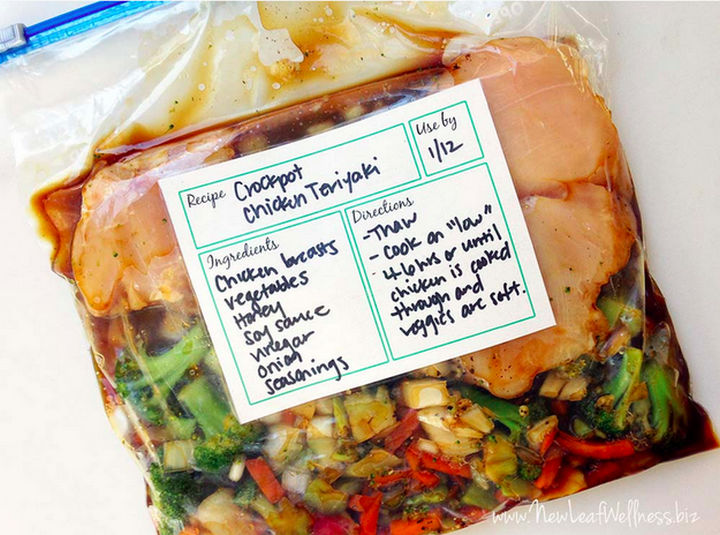 Recipe Crockpot
Chicken Teriyaki
Use by
1/12
Ingredients
Chicken breasts
vegetables
Honey
soy sauce
vinegar
onion
seasonings
Directions
-Thaw
- Cook on "low"
- 4-6 hrs or until
chicken is cooked
through and
veggies are soft.
www.NewLeafWellness.biz